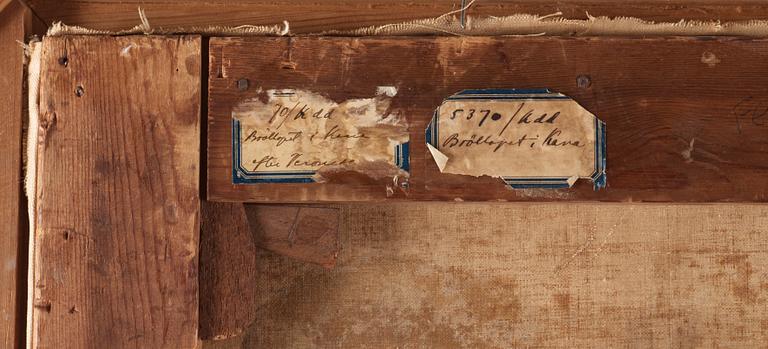 70/Kdd
Bröllopet i Kana
efter Verones
5370/Kdd
Bröllopet i Kana